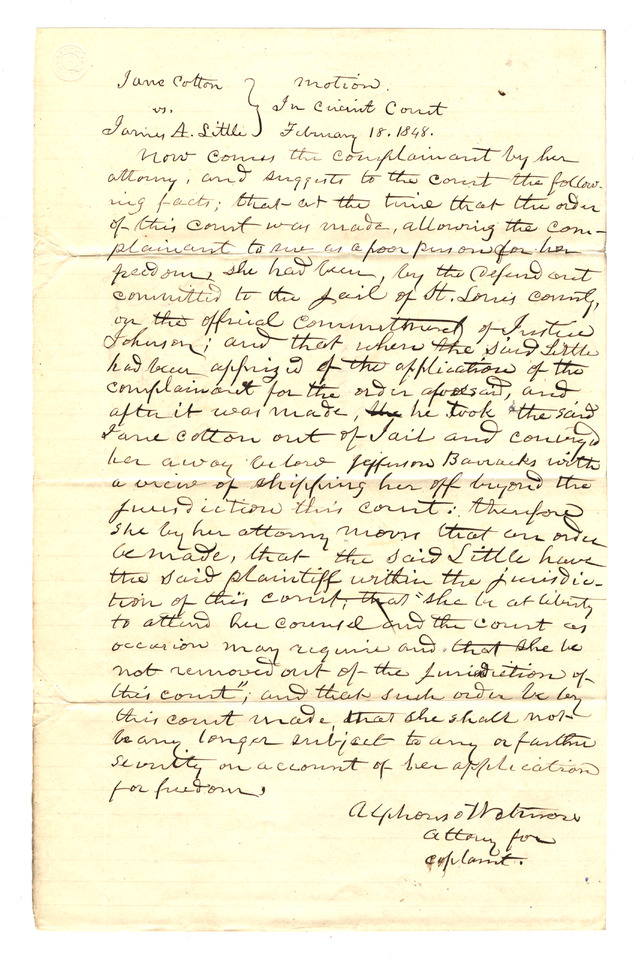 Jane Cotton } Motion.
vs. } In Circuit Court
James A. Little } February 18. 1848.
Now comes the complainant by her
attorny, and suggests to the court the follow-
ing facts; that at the time that the order
of this court was made, allowing the com-
plainant to sue as a poor person for her
freedom, she had been, by the Defendant
committed to the jail of St. Louis county,
on the official commitment of Justice
Johnson; and that when the said Little
had been apprized of the application of the
complainant for the order aforesaid, and
after it was made, the he took the said
Jane Cotton out of Jail and conveyed
her away below Jefferson Barracks with
a view of shipping her off beyond the
jurisdiction this court: therefore
she by her attorny moves that an order
be made, that the said Little have
the said plaintiff within the jurisdic-
tion of this court; that "she be at liberty
to attend her counsel and the court as
occasion may require and that she be
not removed out of the jurisdiction of
this court"; and that such order be by
this court made, that she shall not
be any longer subject to any or farther
severity on account of her application
for freedom,
Alphonso Wetmore
Attorny for
complaint.